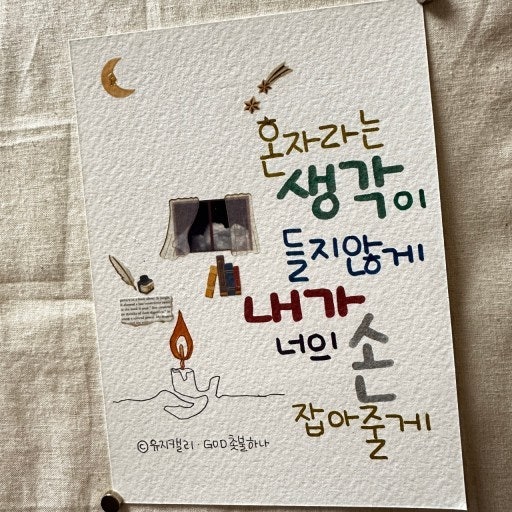 혼자라는
생각이
들지않게
내가
너의 손
잡아줄게
©유지캘리·GOD촛불하나